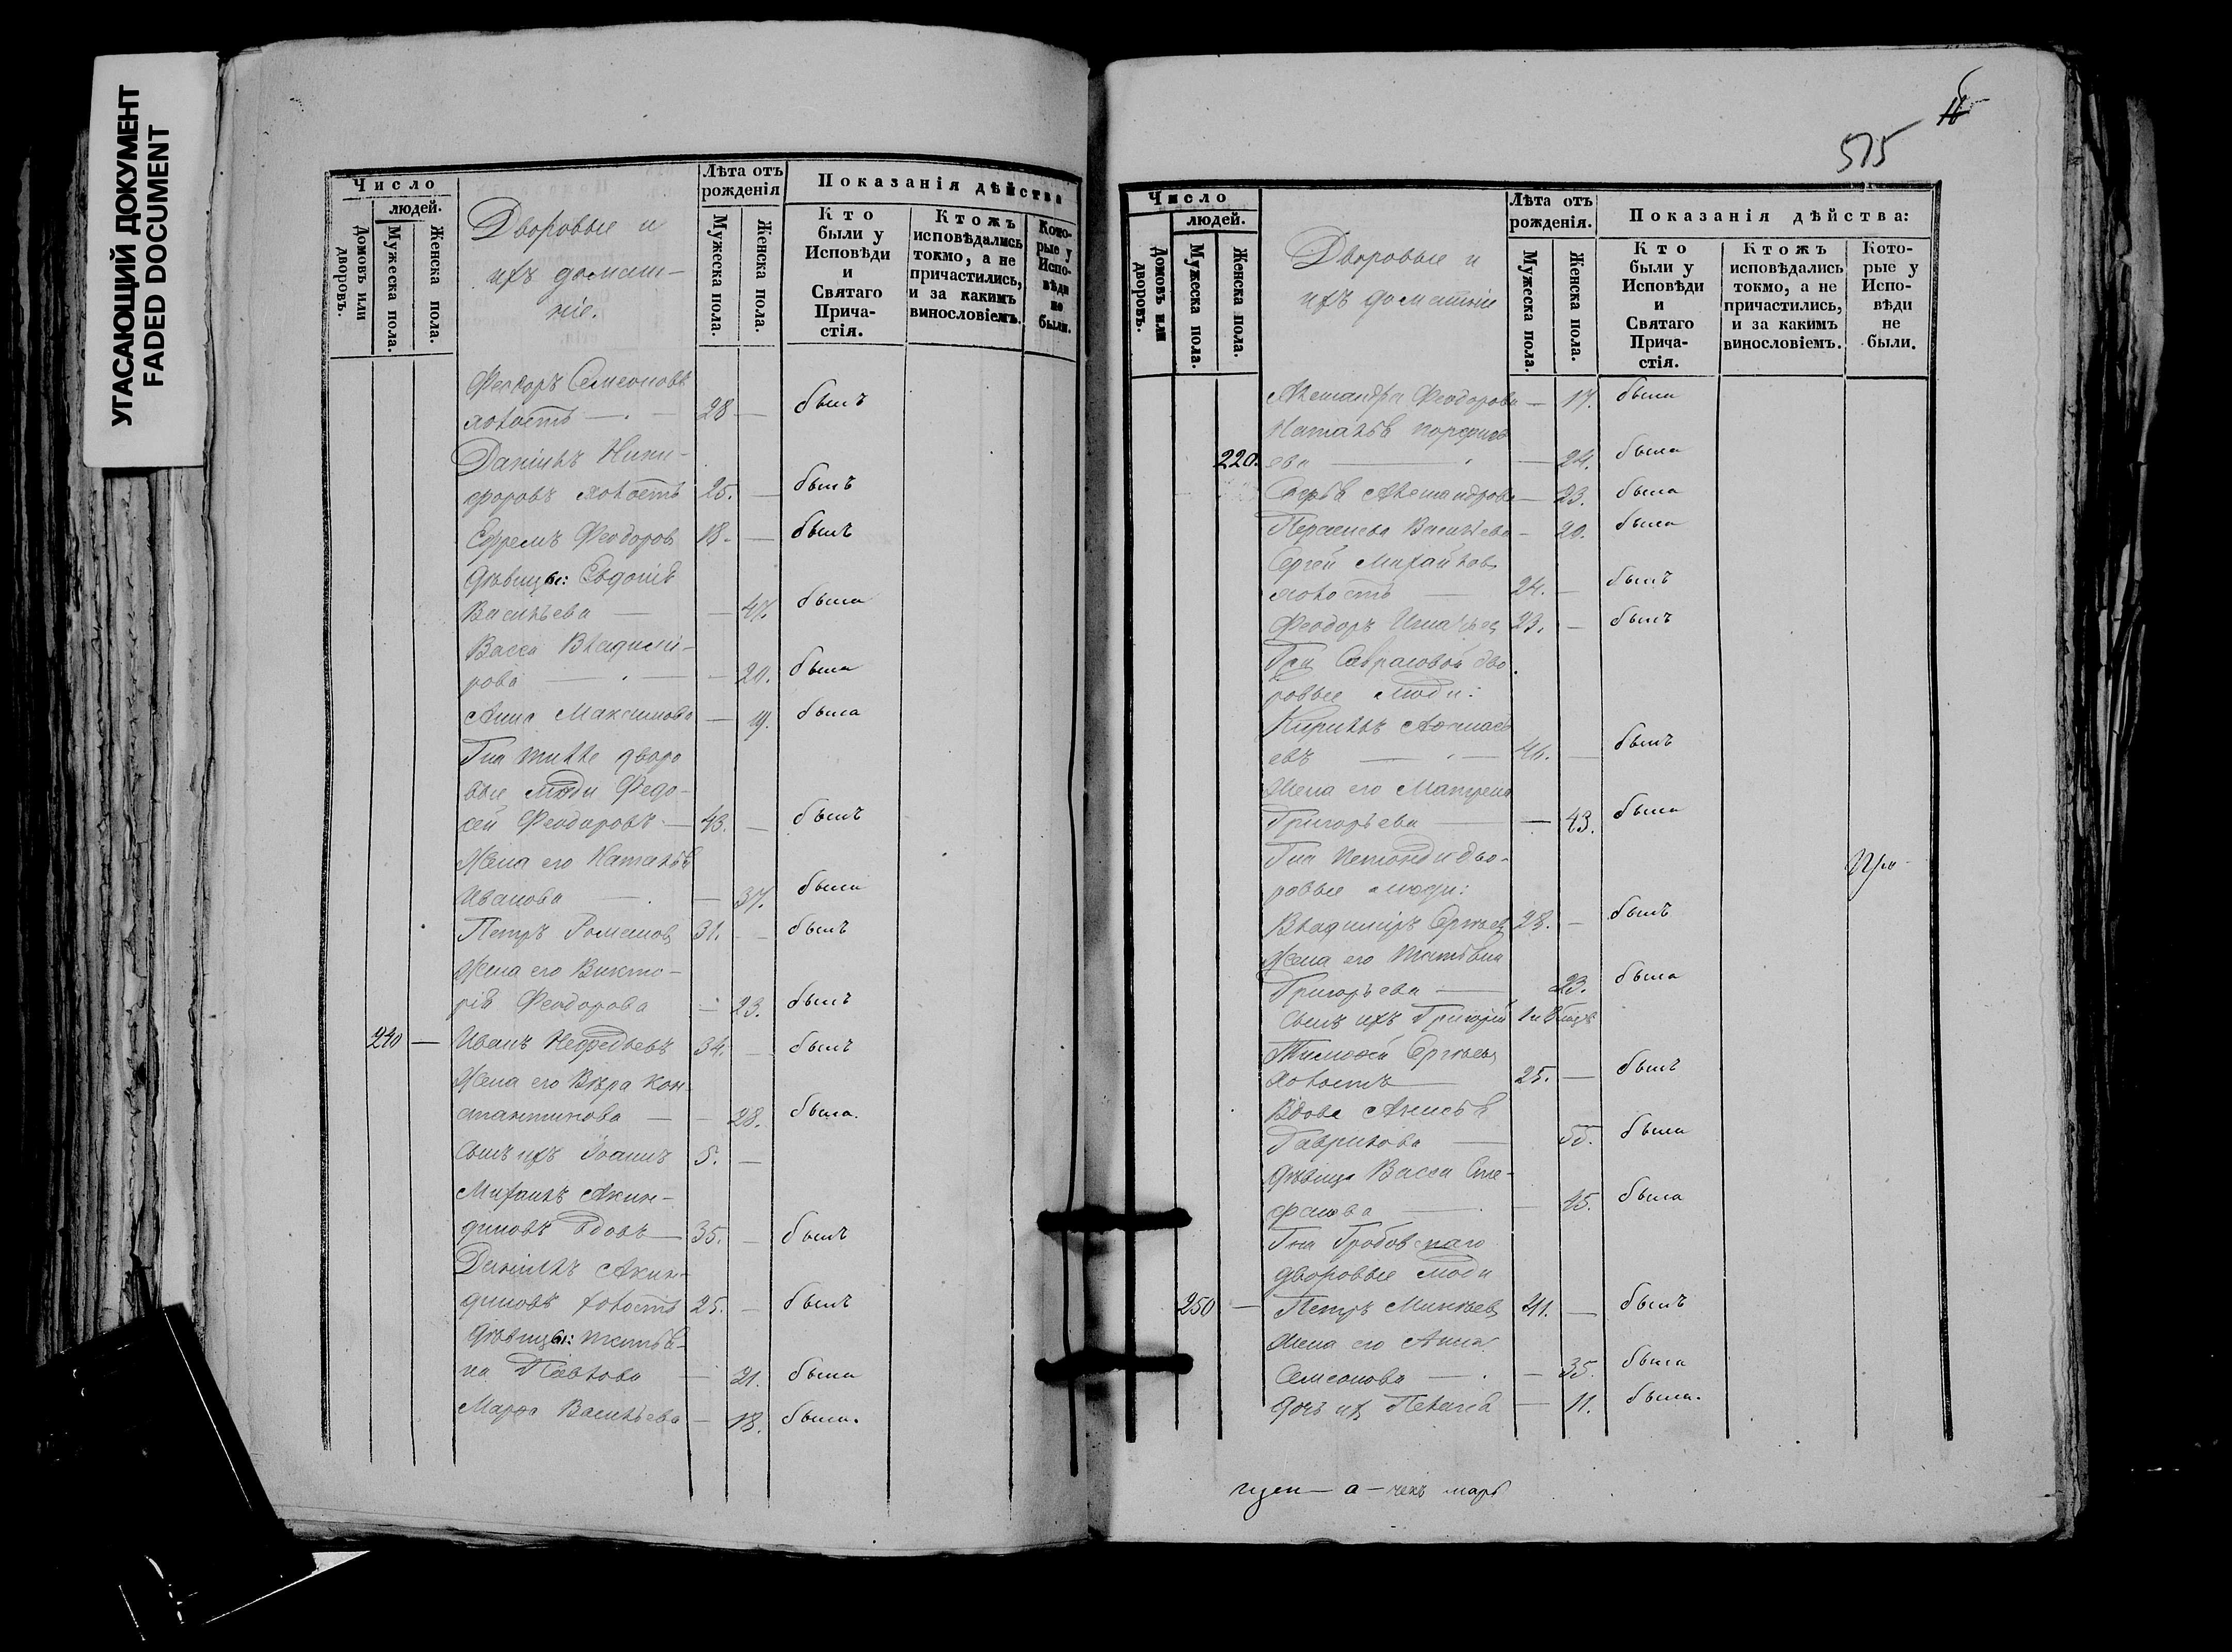 УГАСАЮЩИЙ ДОКУМЕНТ
FADED DOCUMENT
Число
людей.
Домовъ или дворовъ.
Мужеска пола.
Женска пола.
Дворовые и
ихъ домаш-
ніе.
Лѣта отъ
рожденія
Мужеска пола.
Женска пола.
Показанія дѣйства
Кто
были у
Исповѣди
и
Святаго
Прича-
стія.
Ктожъ
исповѣдались
токмо, а не
причастились,
и за какимъ
винословіемъ.
Кото-
рые у
Испо-
вѣди
не
были.
Феодоръ Семеоновъ
холостъ — 28 — былъ
Даніилъ Ники-
форовъ холостъ 25. — былъ
Ефремъ Феодоров 18. — былъ
Дѣвицы: Евдокія
Васильева — 47. была
Васса Владимі-
рова — 20. была
Анна Максимова — 19. была
дворо
вые люди Федо-
сей Феодоровъ — 43. — былъ
Жена его Наталія
Иванова — 37. была
Петръ Романов 31. — былъ
Жена его Викто-
рія Феодорова — 23. былъ
240 — Иванъ Нефедьевъ 34. — былъ
Жена его Вѣра Кон-
стантинова — 28. была.
Сынъ ихъ Іоаннъ 5. —
Михаилъ Акин-
диновъ вдовъ — 35. — былъ
Даніилъ Акин-
диновъ холостъ 25. — былъ
Дѣвицы: Татья-
на Павлова — 21. была
Марфа Васильева — 18. была.
16
515
Число
людей.
Домовъ или дворовъ.
Мужеска пола.
Женска пола.
Дворовые и
ихъ домашніе
Лѣта отъ
рожденія.
Мужеска пола.
Женска пола.
Показанія дѣйства:
Кто
были у
Исповѣди
и
Святаго
Прича-
стія.
Ктожъ
исповѣдались
токмо, а не
причастились,
и за какимъ
винословіемъ.
Кото-
рые у
Испо-
вѣди
не
были.
Александра Феодорова — 17. была
Наталія Порфирь
220. ева — 24. была
Софья Александрова — 23. была
Васильева — 20. была
Сергей Михайлов
холостъ — 24. — былъ
Феодоръ Игнатьев 23. — былъ
Гжи дво
ровые люди:
Кириллъ Афанась
евъ — 46. — былъ
Жена его Матрена
Григорьева — 43. была
дво-
ровые люди:
Владиміръ Сергѣев 28. — былъ
Жена его Татьяна
Григорьева — 23. была
Сынъ ихъ Григорій
Тимофей Сергѣев
холостъ — 25. — былъ
Вдова
Гаврилова — 55. была
Дѣвица Васса Сте-
фанова — 15. была
Гна
дворовые люди
250 — Петръ Минѣев 41. — былъ
Жена его Анна
Семеонова — 35. была
Дочь их Пелагія — 11. была.